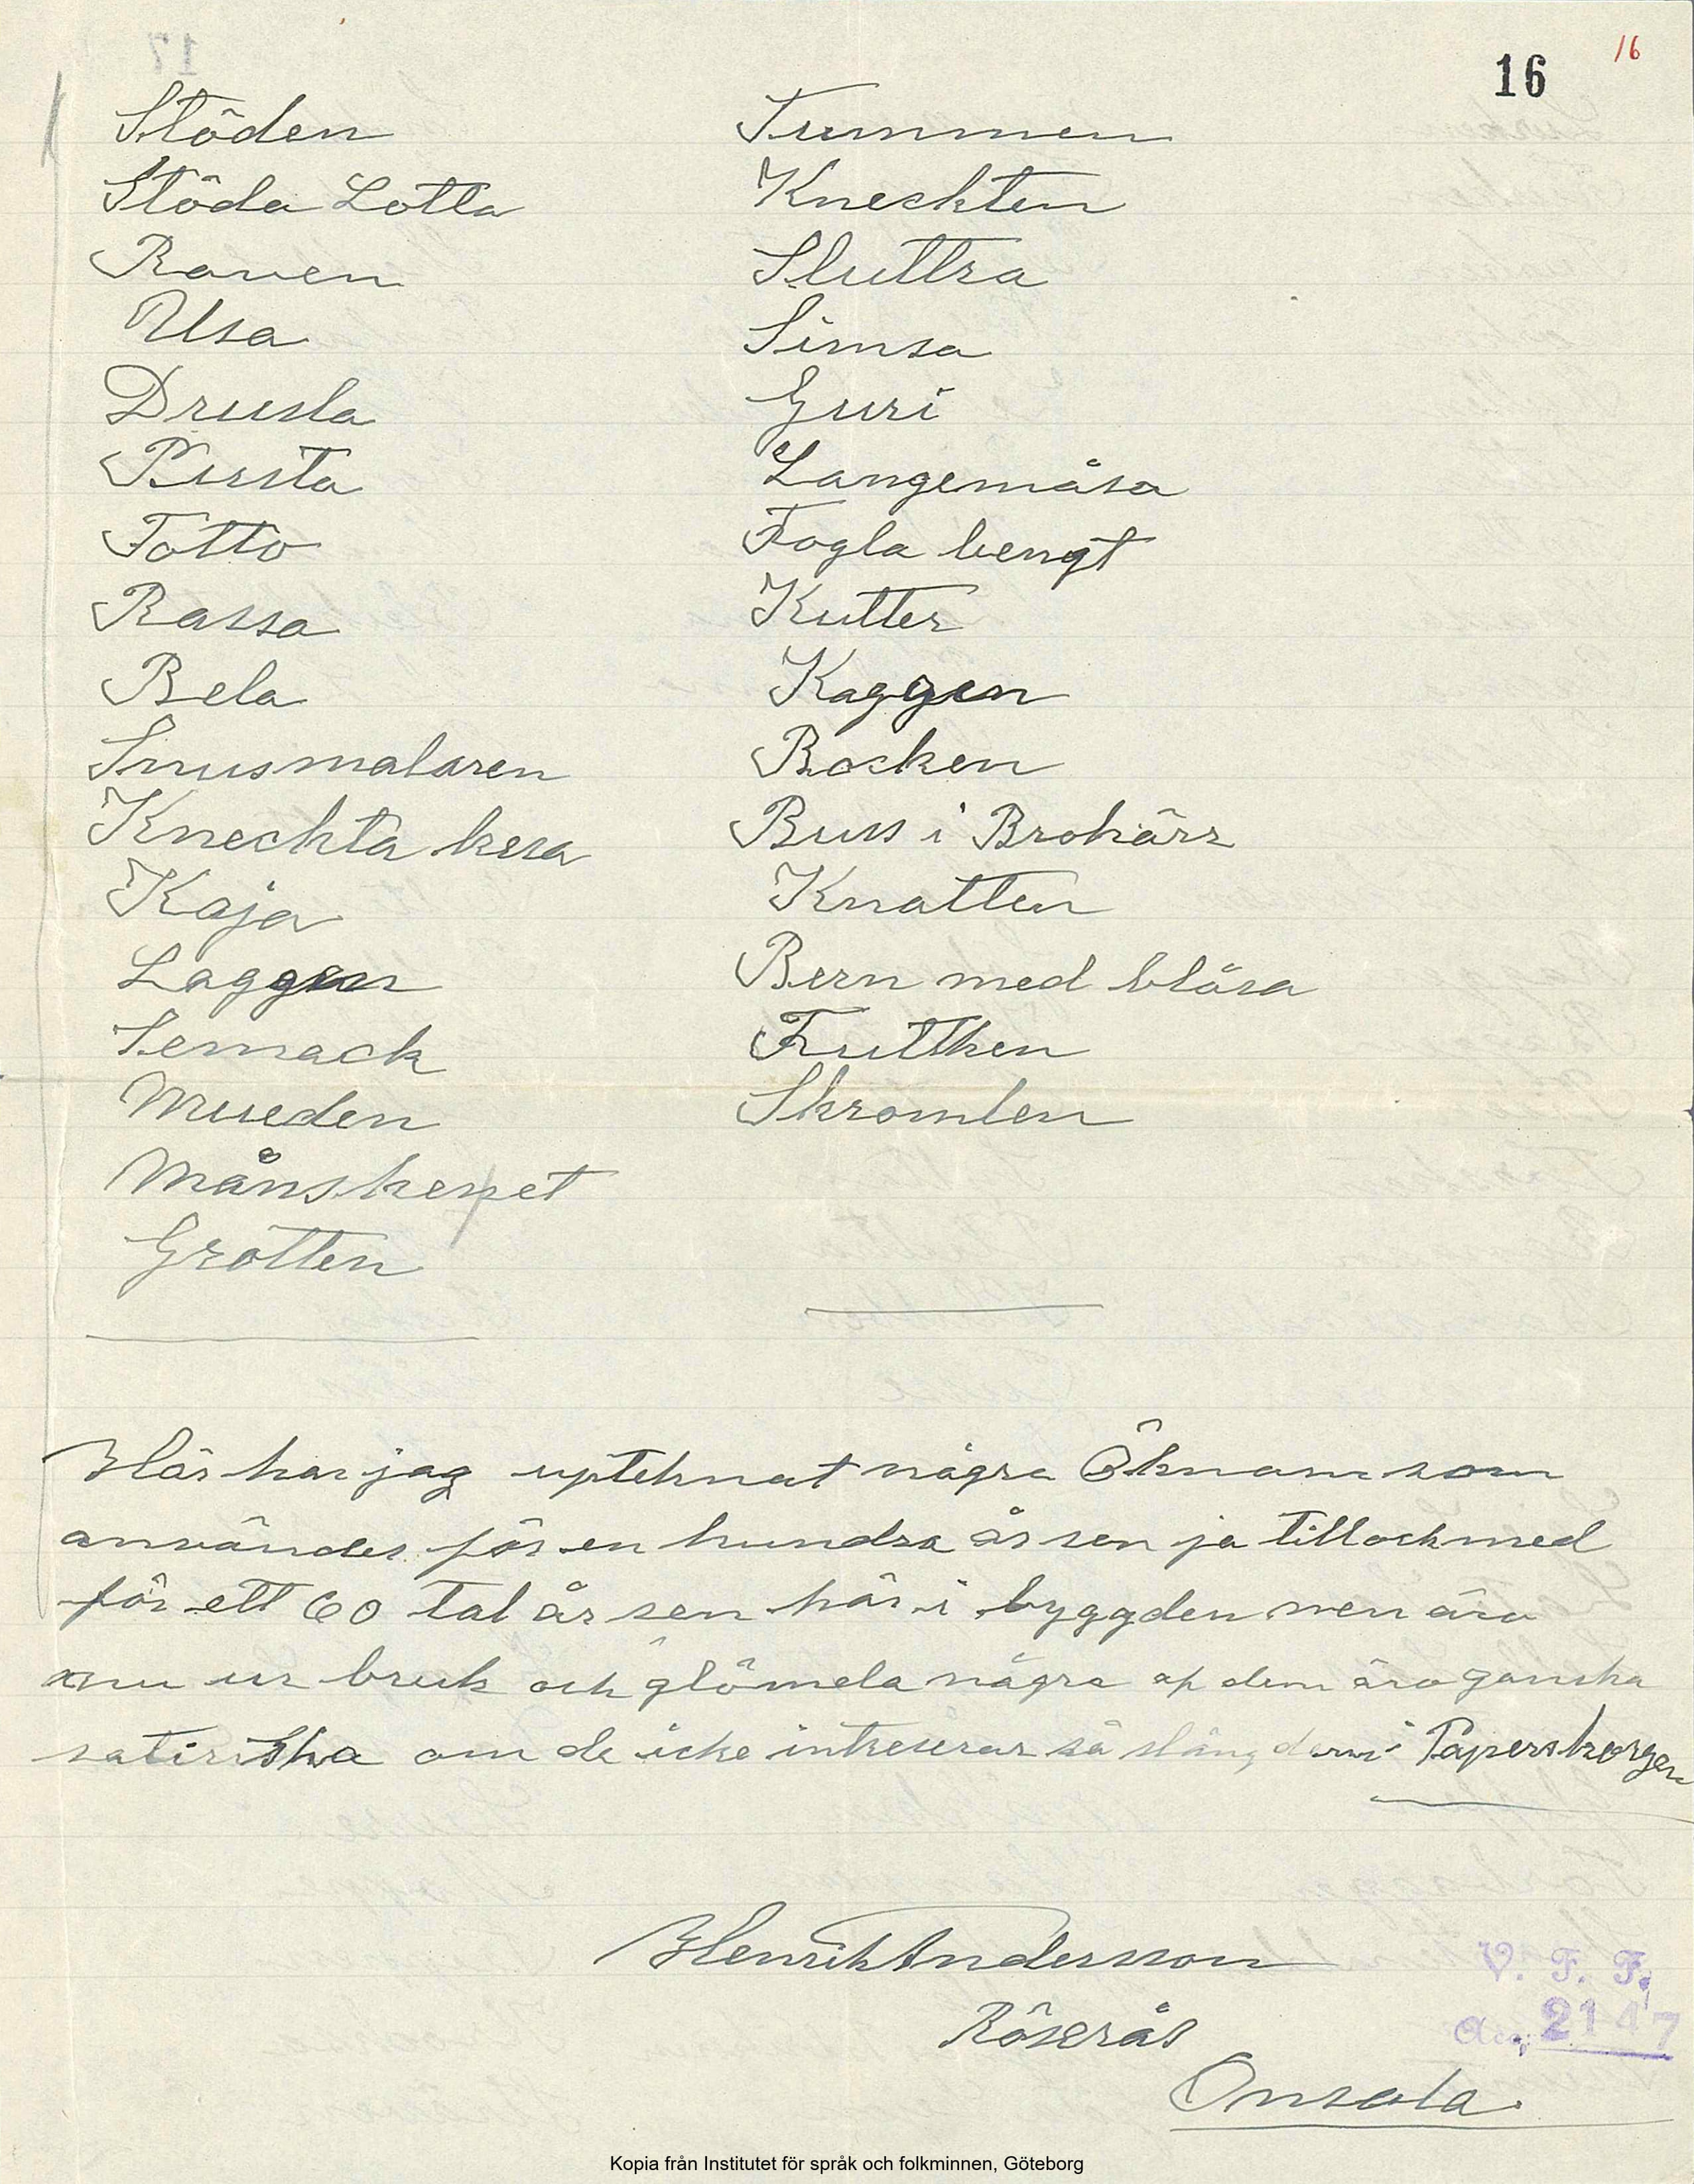 16
16
Stöden
Stöda Lotta
Raven
Usa
Drusla
Pursta
Totto
Rassa
Bela
Snusmalaren
Kneckta kesa
Kaja
Laggen
Semack
Mueden
Månskenet
Grötten
Tummen
Kneckten
Sluttra
Simsa
Guri
Langemåsa
Fogla bengt
Kutter
Kaggen
Bocken
Buss i Brokärr
Knatten
Bern med blåsa
Frutthen
Skromlen
Här har jag upteknat några Öknam som
användes för en hundra år sen ja tillochmed
för ett 60 tal år sen här i byggden men äro
nu ur bruk och glömda några af dem äro ganska
satiriska om de icke intreserar så släng dem i Paperskorgen
Henrik Andersson
Röserås
Onsala.
V. F. F.
Acc. 2147
Kopia från Institutet för språk och folkminnen, Göteborg